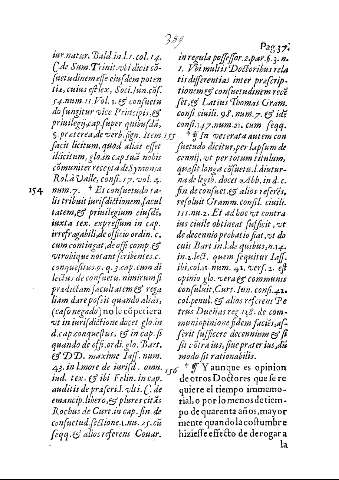 359
Pag 37.
iur natur. Bald. in l.1. col. 14.
C. de Sum. Trinit. vbi dicit cõ-
suetudinem esse eiusdem poten
tiæ, cuius est lex, Soci. Iun. cõs.
54. num. 11. Vol. 2. & consuetu
do fungitur vice Principis, &
priuilegij, cap. super quibusdã,
§. præterea, de verb. sign. Item
facit licitum, quod aliàs esset
illicitum, glo. in cap. sua nobis
communiter recepta de
Rol. à Valle. cons. 17. vol. 4.
154 num. 7. † Et consuetudo ta-
lis tribuit iurisdictionem, facul
tatem, & priuilegium eiusdẽ,
iuxta tex. expressum in cap.
irrefragabili, de offic. ordin. c.
cum contingat, de offi. comp. &
vtrobique notant scribentes. c.
conquestus. 9. q. 3. cap. cum di
lectus. de consuetu. nimirum si
prædictam facultatem & rega
liam dare possit quando aliàs,
(caso negado) no le cõpeciera
vt in iurisdictione docet glo. in
d. cap. conquestus, & in cap. si
quando de offi. ordi. glo. Bart.
& DD. maximè Iass. num.
43. in l. more de iurisd. omn.
iud. tex. & ibi Felin. in cap.
auditis de præscri. l. vlti. C. de
emancip. libero, & plures citãs
Rochus de Curt. in cap. fin. de
consuetud. sectione. 1. nu. 25. cũ
seqq. & alios referens Couar.
in regula possessor. 2. par. §. 3. n.
1. Vbi multis Doctoribus rela
tis differentias inter præscrip-
tionem & consuetudinem recẽ
set, & Latius Thomas Gram.
consi. ciuili. 98. num. 7. & idẽ
cons. 147. num. 21. cum seqq.
155 † ¶ In vetrata autem con
suetudo dicitur, per lapsum de
cennij, vt per totum titulum,
quæ sit longa cõsuetu. l. diutur
na de legib. docet Abb. in d. c.
fin. de consuet. & alios referẽs,
resoluit Gramm. consil. ciuili.
111. nu. 2. Et ad hoc vt contra
ius ciuile obtineat sufficit, vt
de decennio probatio fiat, vt do
cuit Bart. in l. de quibus, n. 14.
in 2. lect. quem sequitur Iass.
ibi, col. 2. num. 42. vers. 2. est
opinio glo. vera & communis
consuluit, Curt. Iun. consi. 42.
col. penul. & alios referens Pe
trus Dueñas reg. 128. de com-
muni opinione fidem faciẽs, as-
serit sufficere decennium & si
sit cõtra ius, siue præter ius, dũ
modo sit rationabilis.
156 † ¶ Y aunque es opinion
de otros Doctores que se re
quiere el tiempo immemo-
rial, o por lo menos de tiem-
po de quarenta años, mayor
mente quando la costumbre
hiziesse effecto de derogar a
la